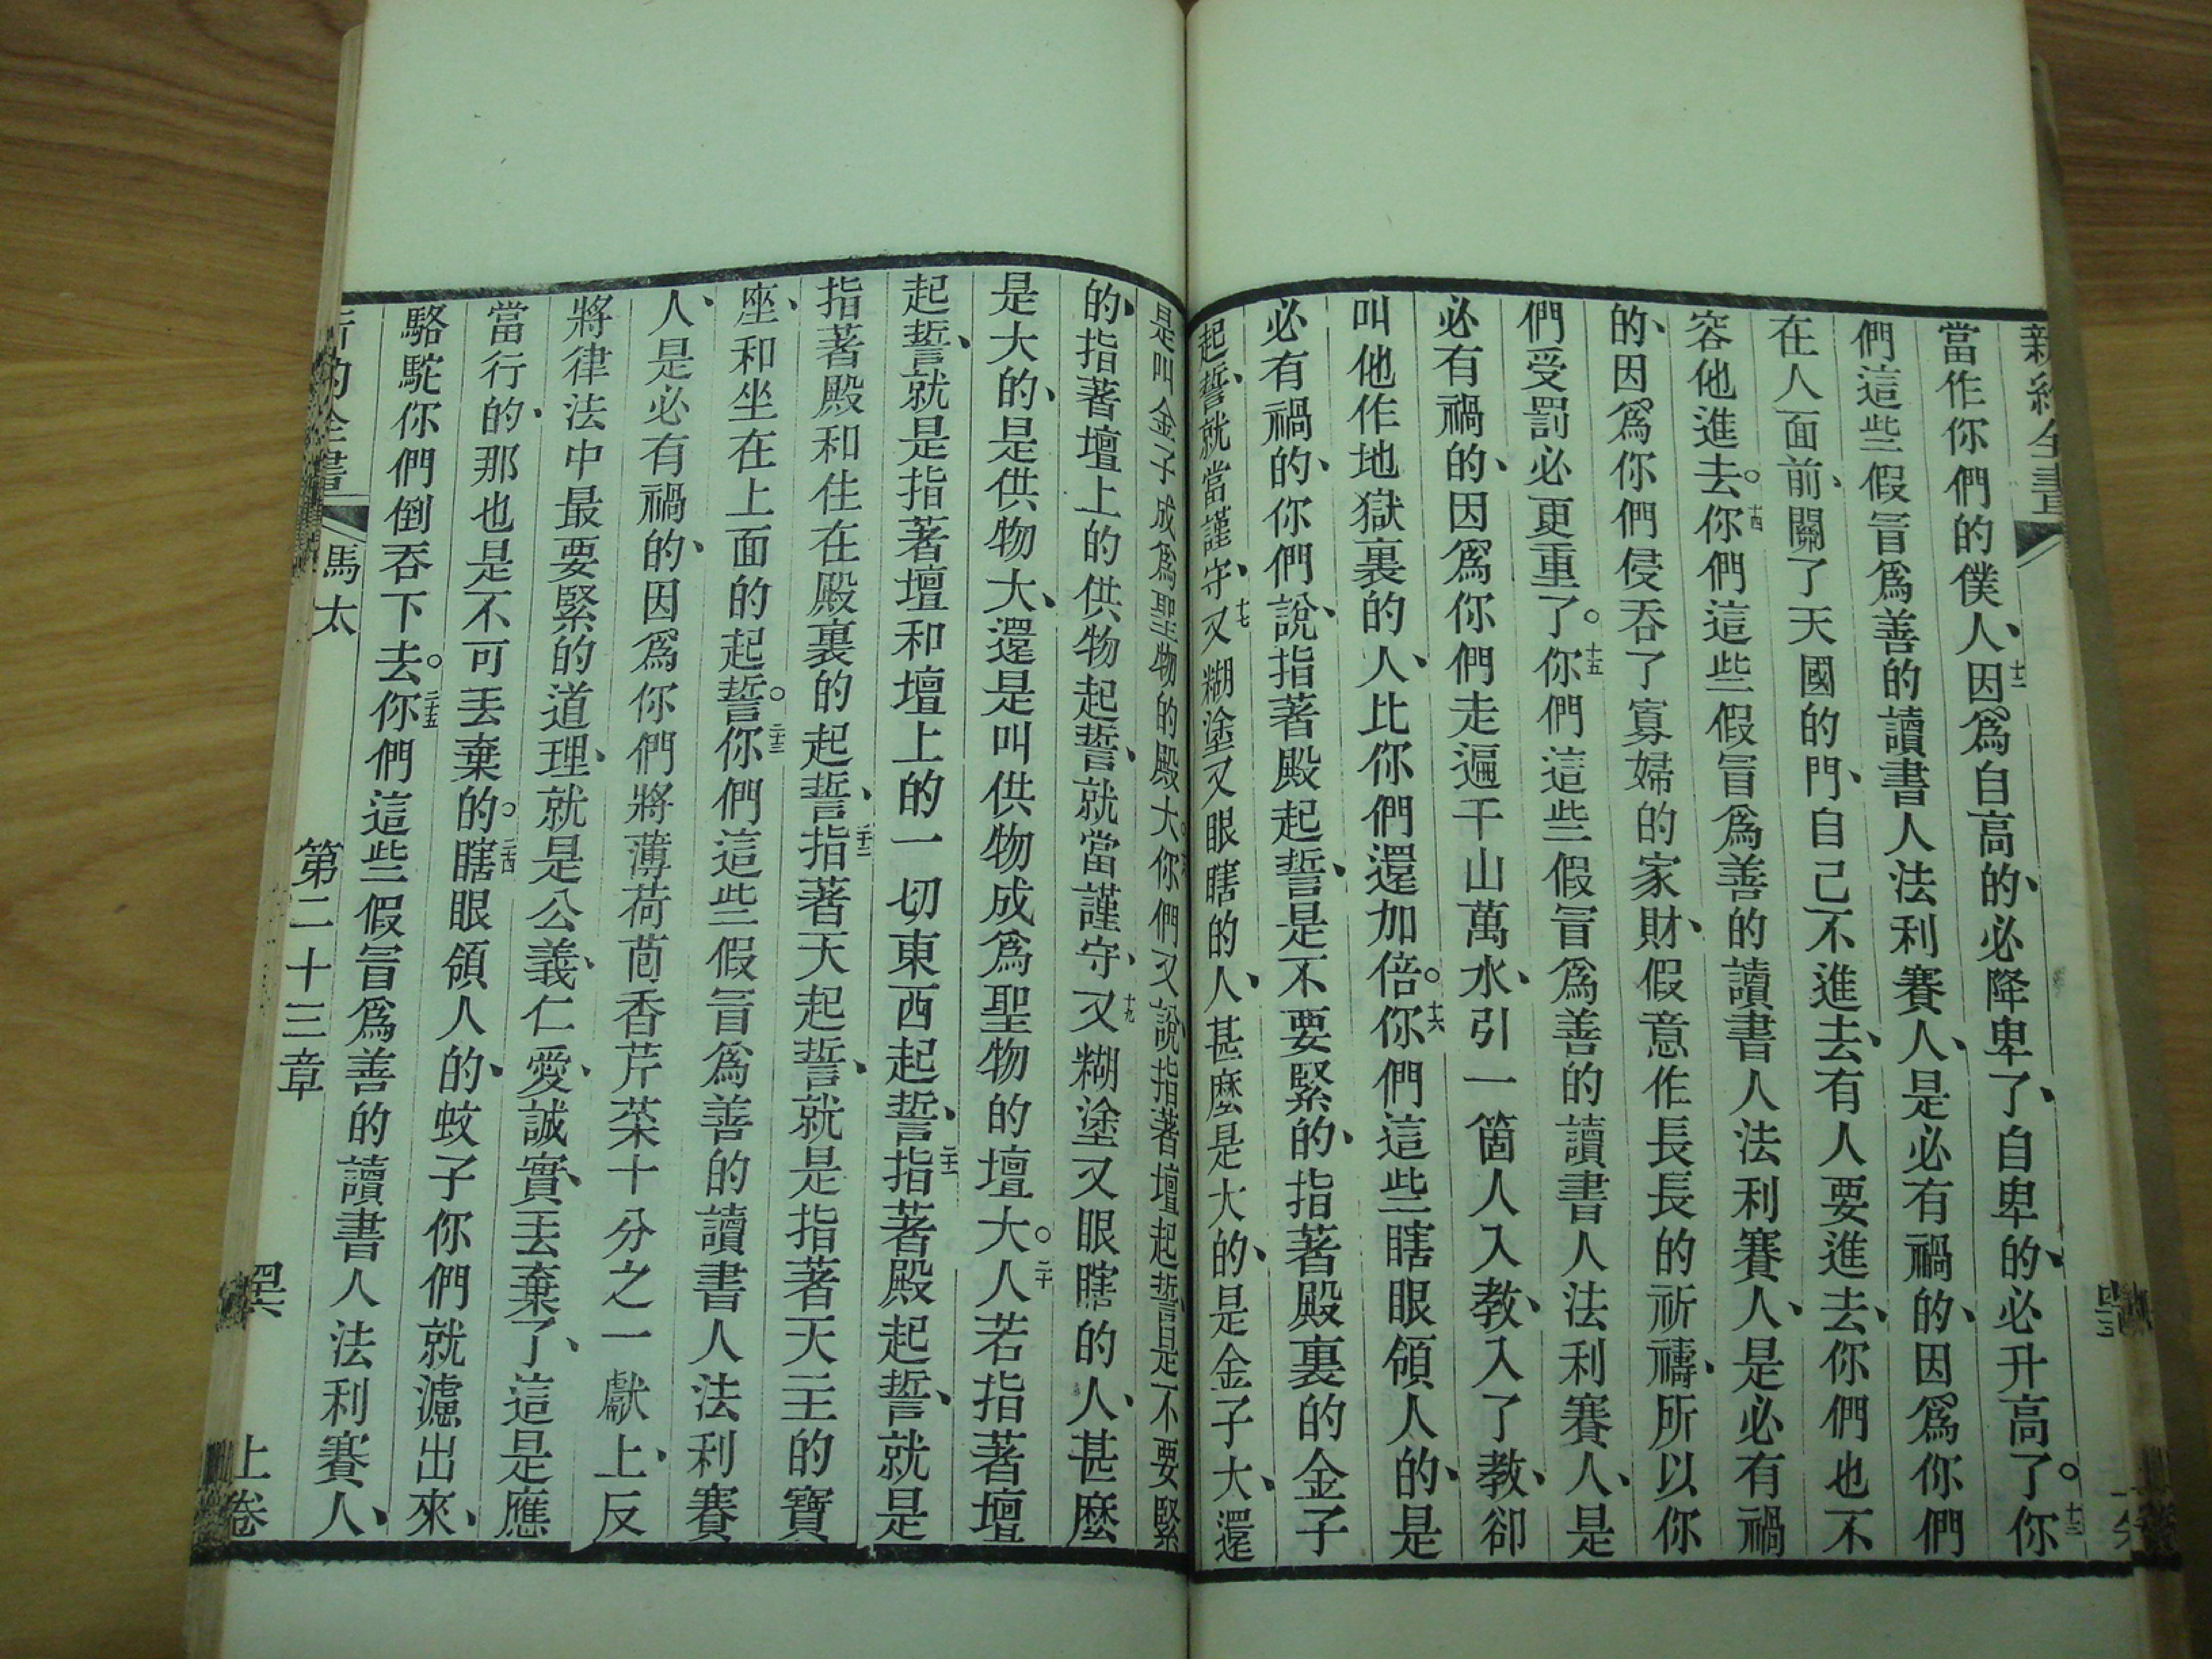 當作你們的僕人、十二因爲自高的、必降卑了、自卑的、必升高了。十三你
們這些假冒爲善的讀書人法利賽人、是必有禍的、因爲你們
在人面前、關了天國的門、自己不進去、有人要進去、你們也不
容他進去。十四你們這些假冒爲善的讀書人法利賽人、是必有禍
的、因爲你們侵吞了寡婦的家財、假意作長長的祈禱、所以你
們受罰必更重了。十五你們這些假冒爲善的讀書人法利賽人、是
必有禍的、因爲你們走遍千山萬水、引一箇人入教、入了教、卻
叫他作地獄裏的人、比你們還加倍。十六你們這些瞎眼領人的、是
必有禍的、你們說、指著殿起誓、是不要緊的、指著殿裏的金子
起誓、就當謹守、十七又糊塗又眼瞎的人、甚麼是大的、是金子大、還
是叫金子成爲聖物的殿大。你們又說、指著壇起誓、是不要緊
的、指著壇上的供物起誓、就當謹守、十九又糊塗又眼瞎的人、甚麼
是大的、是供物大、還是叫供物成爲聖物的壇大。二十人若指著壇
起誓、就是指著壇和壇上的一切東西起誓、二十一指著殿起誓、就是
指著殿和住在殿裏的起誓、二十二指著天起誓、就是指著天主的寶
座、和坐在上面的起誓。二十三你們這些假冒爲善的讀書人法利賽
人、是必有禍的、因爲你們將薄荷茴香芹菜十分之一獻上、反
將律法中最要緊的道理、就是公義、仁愛、誠實、丟棄了、這是應
當行的、那也是不可丟棄的。二十四瞎眼領人的、蚊子你們就濾出來、
駱駝你們倒吞下去。二十五你們這些假冒爲善的讀書人法利賽人、
新約全書 馬太 第二十三章 上卷